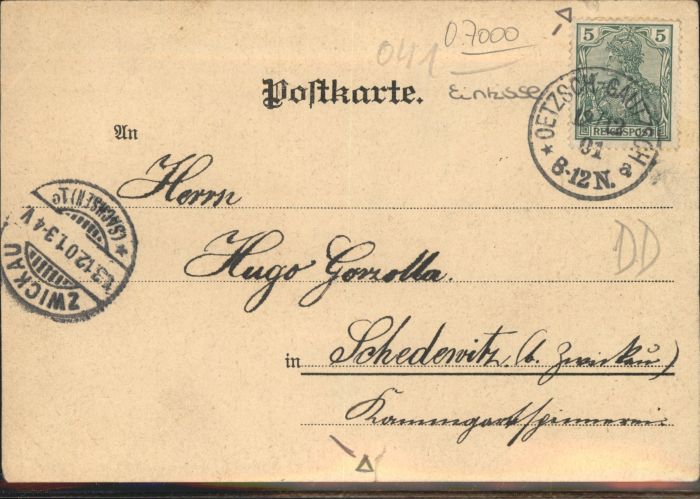 0.7000
041
Einrisse
5 5
REICHSPOST
Postkarte.
* OETZSCH-GAUTZSCH * a
12
01
8-12 N.
An
Herrn
Hugo Gorzolla.
in Schedewitz. (b. Zwickau)
Kammgarnspinnerei.
ZWICKAU
* (SACHSEN) 1e
3.12.01.3-4 V.
DD